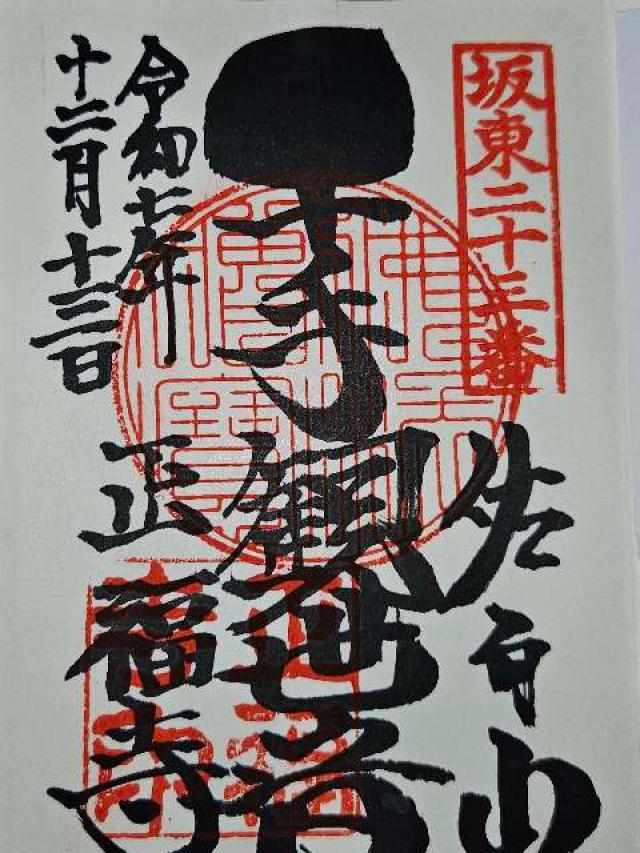 坂東二十三番
佐白山
千手観世音
正福寺
令和七年
十二月十三日